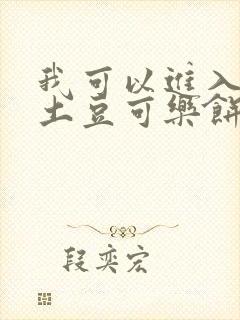 我可以進入
土豆可樂餅
段奕宏